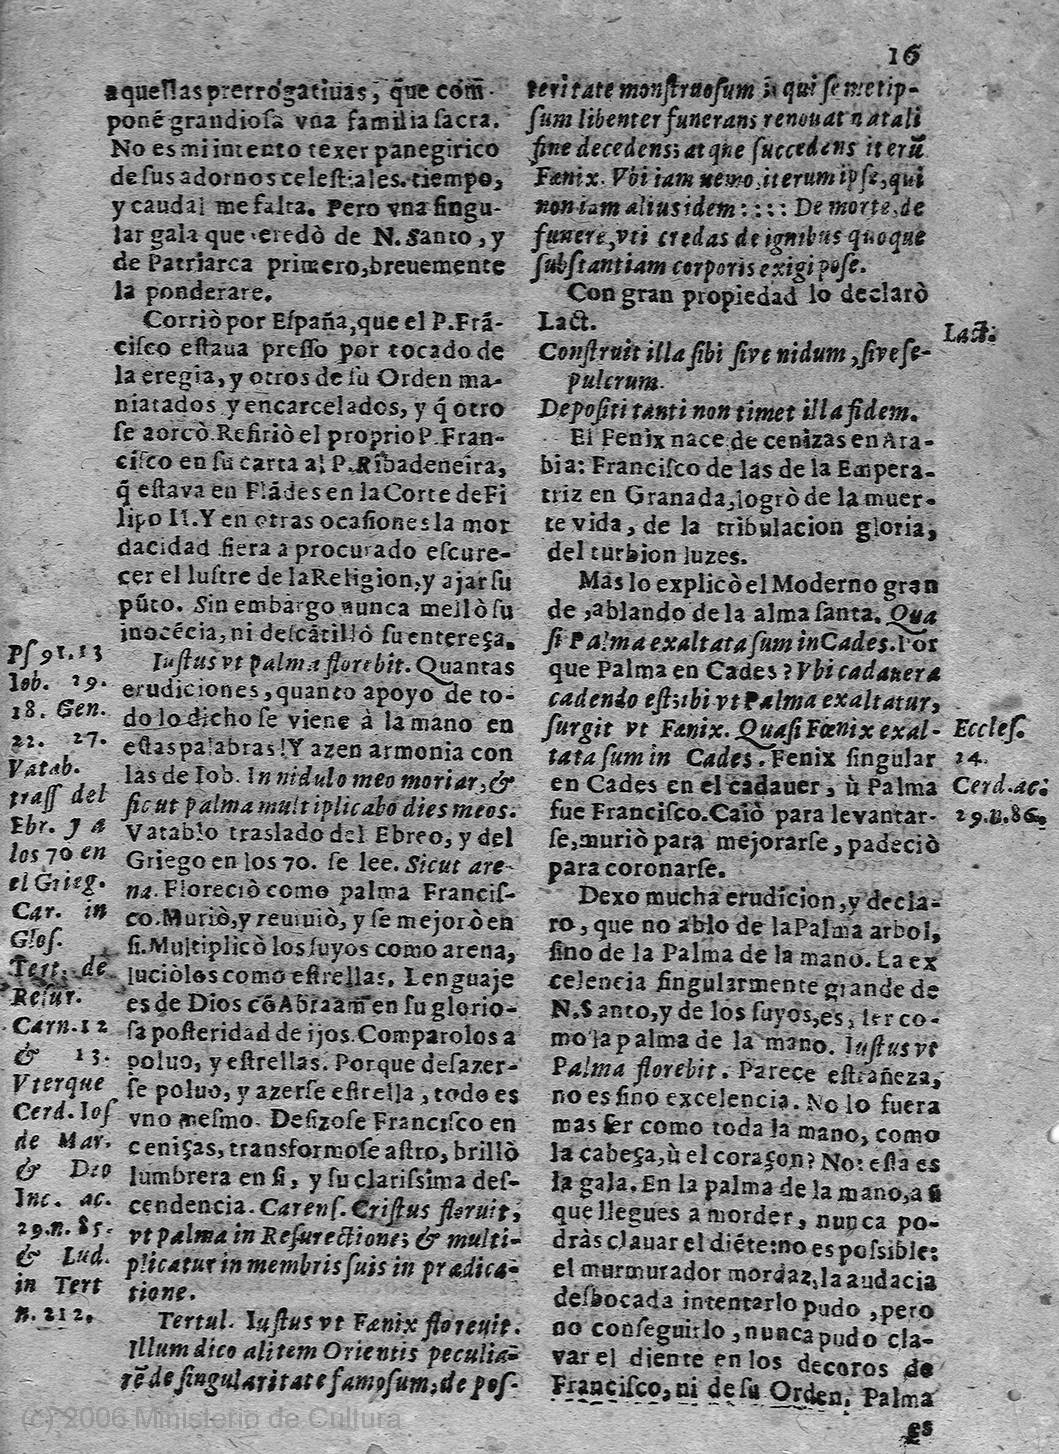 16
aquellas prerrogatiuas, q̃ue com̃-
ponẽ grandiosa vna familia sacra.
No es mi intento texer panegirico
de sus adornos celestiales. tiempo,
y caudal me falta. Pero vna singu-
lar gala que eredò de N. Santo, y
de Patriarca primero, breuemente
la ponderare.
Corriò por España, que el P. Frã-
cisco estaua presso por tocado de
la eregia, y otros de su Orden ma-
niatados y encarcelados, y q̃ otro
se aorcò. Refiriò el proprio P. Fran-
cisco en su carta al P. Ribadeneira,
q̃ estava en Flãdes en la Corte de Fi
lipo II. Y en otras ocasiones la mor
dacidad fiera a procurado escure-
cer el lustre de la Religion, y ajar su
pũto. Sin embargo nunca mellò su
inocẽcia, ni descãtillò su entereça.
Iustus vt palma florebit. Quantas
erudiciones, quanto apoyo de to-
do lo dicho se viene à la mano en
estas palabras! Y azen armonia con
las de Iob. In nidulo meo moriar, &
sicut palma multiplicabo dies meos.
Vatablo traslado del Ebreo, y del
Griego en los 70. se lee. Sicut are-
na. Floreciò como palma Francis-
co. Muriò, y reuiuiò, y se mejorò en
si. Multiplicò los suyos como arena,
luciòlos como estrellas. Lenguaje
es de Dios cõ Abraam en su glorio-
sa posteridad de ijos. Comparolos a
poluo, y estrellas. Porque desazer-
se poluo, y azerse estrella, todo es
vno mesmo. Desizose Francisco en
ceniças, transformose astro, brillò
lumbrera en si, y su clarissima des-
cendencia. Carens. Cristus floruit,
vt palma in Resurectione; & multi-
plicatur in membris suis in prædica-
tione.
Tertul. Iustus vt Fænix floreuit.
Illum dico alitem Orientis peculia-
rẽ de singularitate famosum, de pos-
Ps 91. 13
Iob. 29.
18. Gen.
22. 27.
Vatab.
trass del
Ebr. y a
los 70 en
el Grieg.
Car. in
Glos.
Tert. de
Resur.
Carn. 12
& 13.
Vterque
Cerd. Ios
de Mar.
& Dio
Inc. ac.
29. n. 85.
& Lud.
in Tert
n. 212.
teritate monstruosum qui semetip-
sum libenter funerans renouat natali
fine decedens; atque succedens iterũ
Fænix. Vbi iam nemo, iterum ipse, qui
non iam alius idem :::: De morte, de
funere, vti credas de ignibus quoque
substantiam corporis exigi pose.
Con gran propiedad lo declarò
Lact.
Construit illa sibi sive nidum, sive se-
pulcrum.
Depositi tanti non timet illa fidem.
El Fenix nace de cenizas en Ara-
bia: Francisco de las de la Empera-
triz en Granada, logrò de la muer-
te vida, de la tribulacion gloria,
del turbion luzes.
Mas lo explicò el Moderno gran
de, ablando de la alma santa. Qua
si Palma exaltata sum in Cades. Por
que Palma en Cades? Vbi cadauera
cadendo est; ibi vt Palma exaltatur,
surgit vt Fænix. Quasi Fœnix exal-
tata sum in Cades. Fenix singular
en Cades en el cadauer, ù Palma
fue Francisco. Caiò para levantar-
se, muriò para mejorarse, padeciò
para coronarse.
Dexo mucha erudicion, y decla-
ro, que no ablo de la Palma arbol,
sino de la Palma de la mano. La ex
celencia singularmente grande de
N. Santo, y de los suyos, es, ser co-
mo la palma de la mano. Iustus vt
Palma florebit. Parece estrañeza,
no es sino excelencia. No lo fuera
mas ser como toda la mano, como
la cabeça, ù el coraçon? No: esta es
la gala. En la palma de la mano, a si
que llegues a morder, nunca po-
dràs clauar el diẽte: no es possible:
el murmurador mordaz, la audacia
desbocada intentarlo pudo, pero
no conseguirlo, nunca pudo cla-
var el diente en los decoros de
Francisco, ni de su Orden. Palma
es
Lact.
Eccles.
24.
Cerd. ac.
29. n. 86.
(c) 2006 Ministerio de Cultura